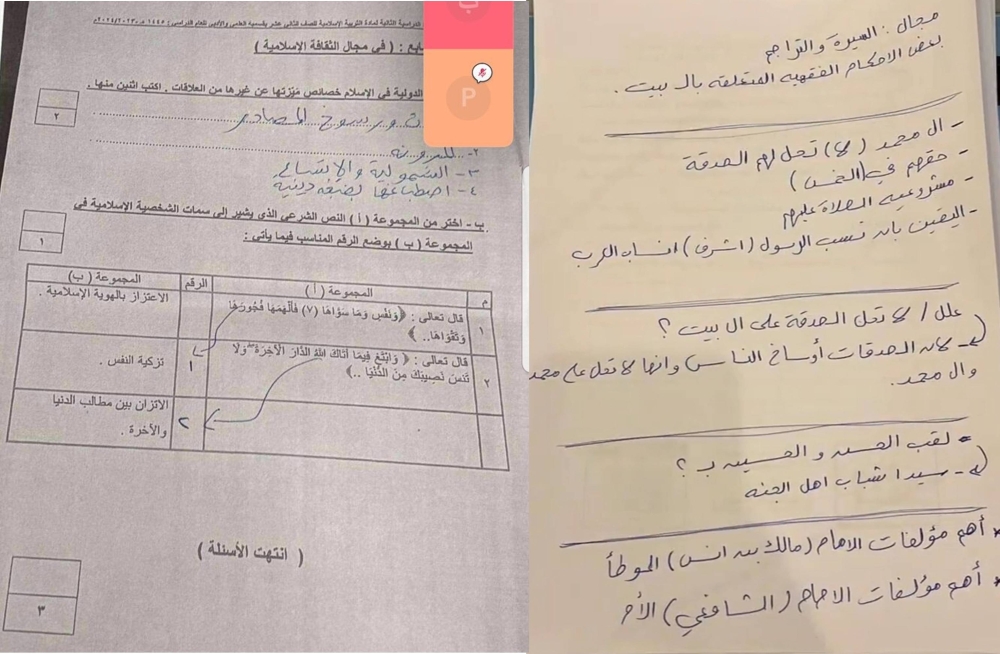 الدراسية الثانية لمادة التربية الإسلامية للصف الثاني عشر بقسميه العلمي والأدبي للعام الدراسي: ١٤٤٥ هـ ٢٠٢٣/٢٠٢٤
( في مجال الثقافة الإسلامية )
الدولية في الإسلام خصائص ميّزتها عن غيرها من العلاقات . اكتب اثنين منها .
٢
ورسوخ المصادر
٢- المرونة
٣- الشمولية والاتساع
٤- اصطباغها بصبغة دينية
ب- اختر من المجموعة ( أ ) النص الشرعي الذي يشير إلى سمات الشخصية الإسلامية في
المجموعة ( ب ) بوضع الرقم المناسب فيما يأتي :
١
م المجموعة ( أ ) الرقم المجموعة ( ب )
١ قال تعالى : ﴿ وَنَفْسٍ وَمَا سَوَّاهَا (٧) فَأَلْهَمَهَا فُجُورَهَا الاعتزاز بالهوية الإسلامية .
وَتَقْوَاهَا.. ﴾
٢ قال تعالى : ﴿ وَابْتَغِ فِيمَا آتَاكَ اللهُ الدَّارَ الْآخِرَةَ وَلَا ١ تزكية النفس .
تَنسَ نَصِيبَكَ مِنَ الدُّنْيَا ..﴾
٢ الاتزان بين مطالب الدنيا
والآخرة .
( انتهت الأسئلة )
٣
P
مجال : السيرة والتراجم
بعض الاحكام الفقهيه المتعلقة بال بيت .
- ال محمد (لا) تحل لهم الصدقة
- حقهم في (الخمس)
- مشروعيه الصلاة عليهم
- اليقين بان نسب الرسول (اشرف) انساب العرب
علل / لا تحل الصدقة على ال بيت ؟
لان الصدقات أوساخ الناس وانها لا تحل على محمد
وال محمد.
لقب الحسن و الحسين بـ ؟
- سيدا شباب اهل الجنه
* أهم مؤلفات الامام (مالك بن انس) الموطأ
* أهم مؤلفات الامام (الشافعي) الأم